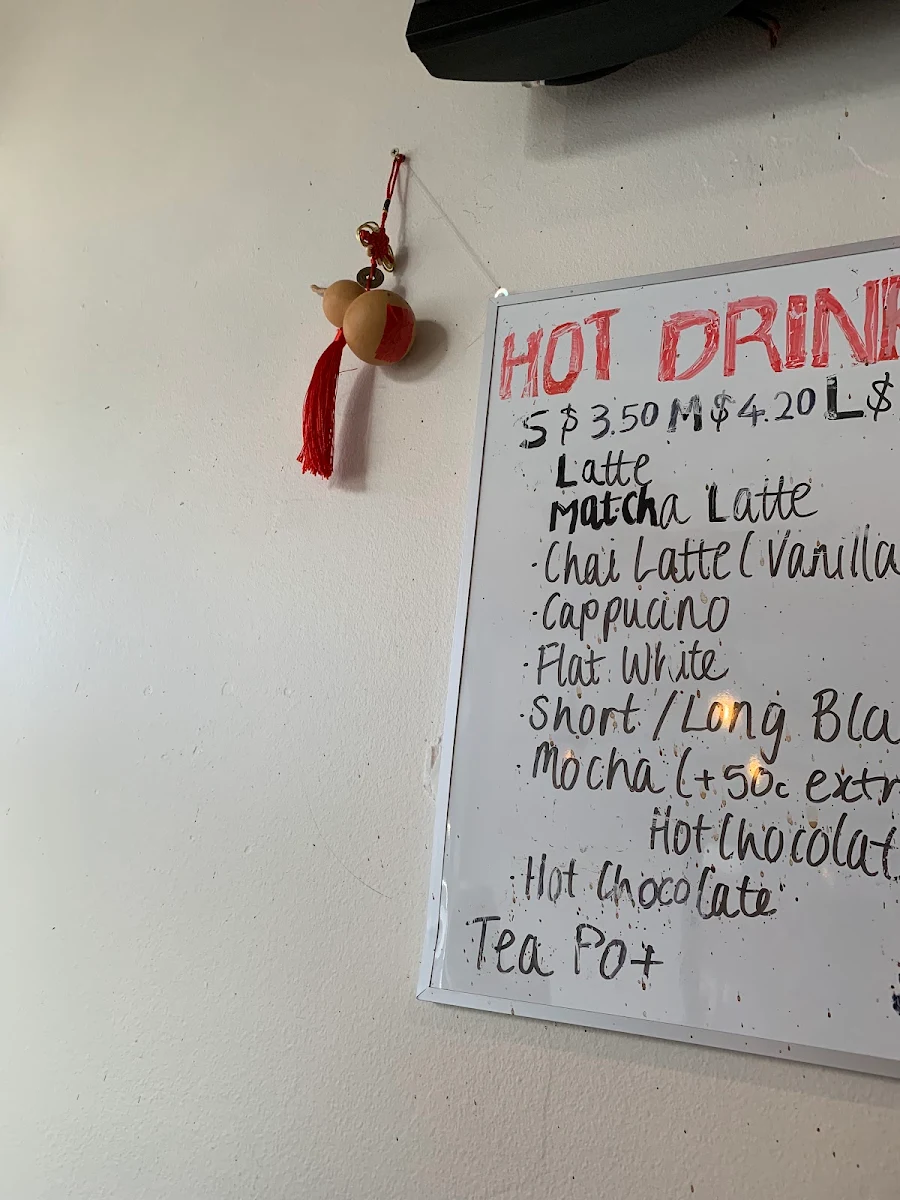 HOT DRIN
S $3.50 M $4.20 L $
Latte
Matcha Latte
·Chai Latte (Vanilla
·Cappucino
·Flat White
·Short / Long Bla
·Mocha (+50c extr
Hot Chocolat
·Hot Chocolate
Tea Pot